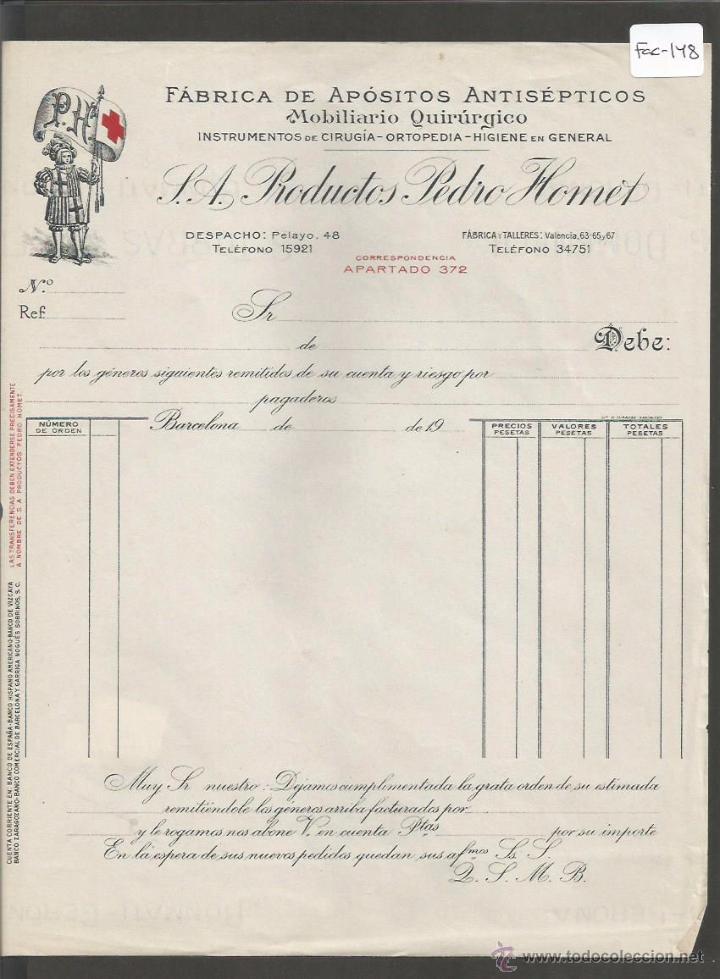 Fac-148
P.H.
FÁBRICA DE APÓSITOS ANTISÉPTICOS
Mobiliario Quirúrgico
INSTRUMENTOS DE CIRUGÍA-ORTOPEDIA-HIGIENE EN GENERAL
S.A. Productos Pedro Homet
DESPACHO: Pelayo, 48
TELÉFONO 15921
FÁBRICA Y TALLERES: Valencia, 63-65 y 67
TELÉFONO 34751
CORRESPONDENCIA
APARTADO 372
N.º
Ref.
Sr
de
Debe:
por los géneros siguientes remitidos de su cuenta y riesgo por
pagaderos
Barcelona de de 19
NÚMERO
DE ORDEN
PRECIOS
PESETAS
VALORES
PESETAS
TOTALES
PESETAS
LAS TRANSFERENCIAS DEBEN EXTENDERSE PRECISAMENTE
A NOMBRE DE S. A. PRODUCTOS PEDRO HOMET.
CUENTA CORRIENTE EN: BANCO DE ESPAÑA-BANCO HISPANO AMERICANO-BANCO DE VIZCAYA
BANCO ZARAGOZANO-BANCO COMERCIAL DE BARCELONA Y GARRIGA NOGUÉS SOBRINOS, S. C.
Muy Sr nuestro: Dejamos cumplimentada la grata orden de su estimada
remitiéndole los géneros arriba facturados por
y le rogamos nos abone V. en cuenta Ptas por su importe
En la espera de sus nuevos pedidos quedan sus af.mos Ss. S.
Q. S. M. B.
todocoleccion
www.todocoleccion.net